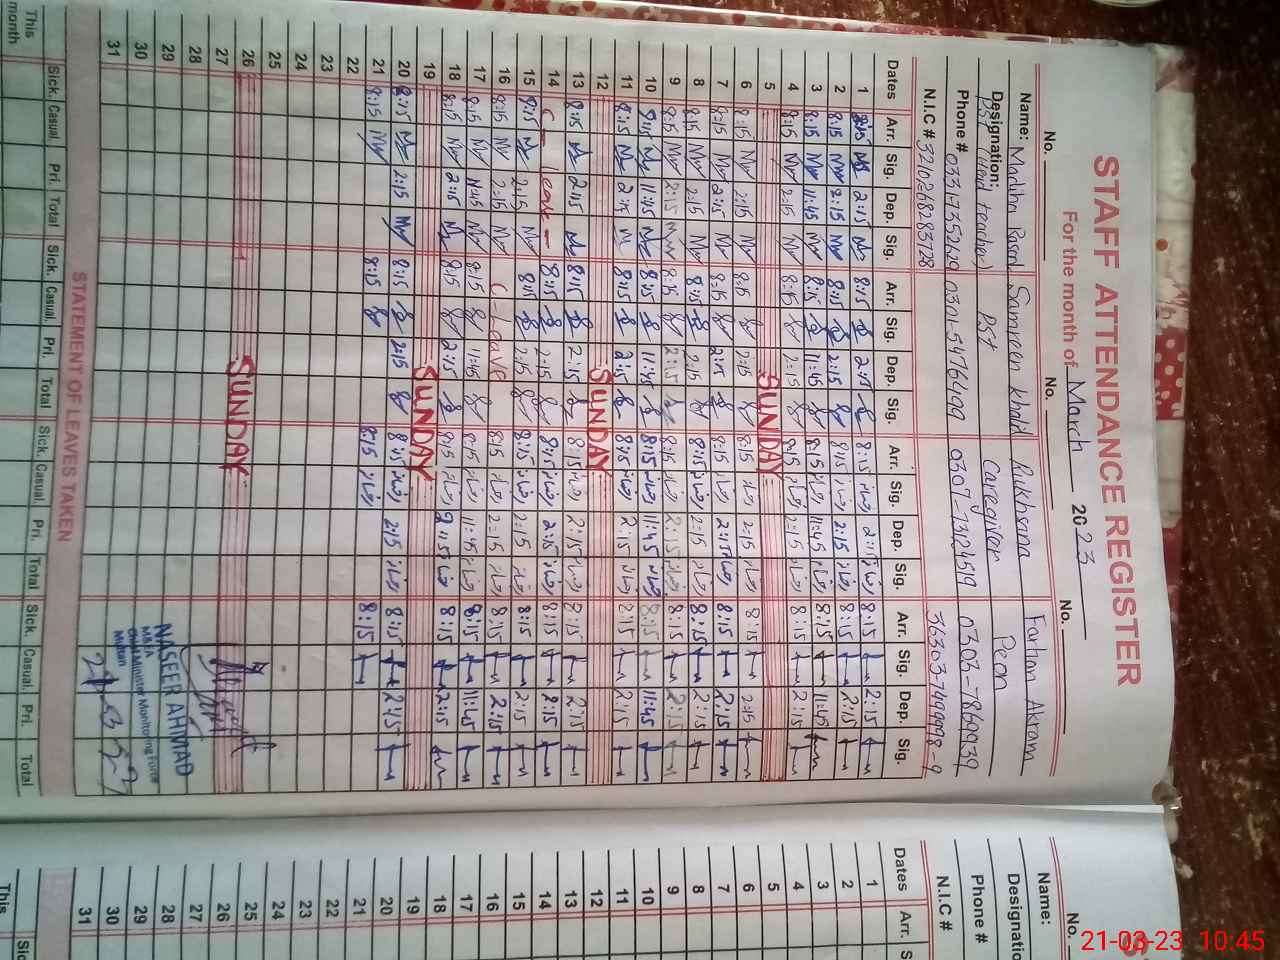 STAFF ATTENDANCE REGISTER
For the month of March 2023
No. No. No.
Name: Madiha Rasool Samreen Khalid Rukhsana Farhan Akram
Designation: PST (Head teacher) PST Caregiver Peon
Phone # 0301-5476499 0307-7312519 0303-7869939
N.I.C # 36303-7499998-9
Dates Arr. Sig. Dep. Sig. Arr. Sig. Dep. Sig. Arr. Sig. Dep. Sig. Arr. Sig. Dep. Sig.
1 8:15 2:15 8:15 2:15 8:15 2:15 8:15 2:15
2 8:15 2:15 8:15 2:15 8:15 2:15 8:15 2:15
3 8:15 11:45 8:15 11:45 8:15 11:45 8:15 11:45
4 8:15 2:15 8:15 2:15 8:15 2:15 8:15 2:15
5 SUNDAY
6 8:15 2:15 8:15 2:15 8:15 2:15 8:15 2:15
7 8:15 2:15 8:15 2:15 8:15 2:15 8:15 2:15
8 8:15 2:15 8:15 2:15 8:15 2:15 8:15 2:15
9 8:15 2:15 8:15 2:15 8:15 2:15 8:15 2:15
10 8:15 11:45 8:15 11:45 8:15 11:45 8:15 11:45
11 8:15 2:15 8:15 2:15 8:15 2:15 8:15 2:15
12 SUNDAY
13 8:15 2:15 8:15 2:15 8:15 2:15 8:15 2:15
14 C - leave - 8:15 2:15 8:15 2:15 8:15 2:15
15 8:15 2:15 8:15 2:15 8:15 2:15 8:15 2:15
16 8:15 2:15 C - leave 8:15 2:15 8:15 2:15
17 8:15 11:45 8:15 11:45 8:15 11:45 8:15 11:45
18 8:15 2:15 8:15 2:15 8:15 8:15 2:15
19 SUNDAY
20 8:15 2:15 8:15 2:15 8:15 2:15 8:15 2:15
21 8:15 8:15 8:15 8:15
22
23
24
25
26 SUNDAY
27
28
29
30
31
NASEER AHMAD
M&EA
Chief Minister Monitoring Force
Multan
STATEMENT OF LEAVES TAKEN
Sick. Casual. Pri. Total Sick. Casual. Pri. Total Sick. Casual. Pri. Total Sick. Casual. Pri. Total
This month
No.
Name:
Designatio
Phone #
N.I.C #
Dates Arr. S
1
2
3
4
5
6
7
8
9
10
11
12
13
14
15
16
17
18
19
20
21
22
23
24
25
26
27
28
29
30
31
Sic
This
21-03-23 10:45